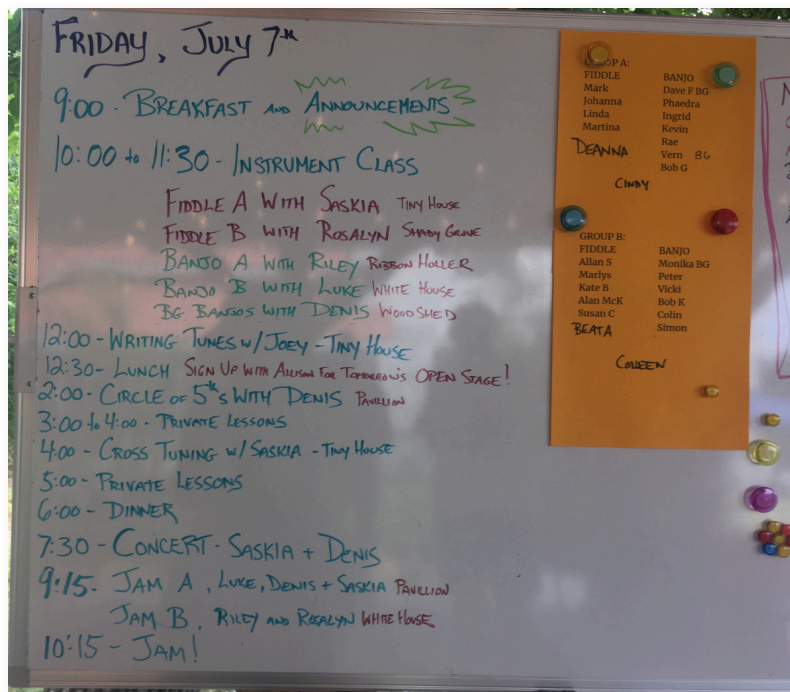 FRIDAY, JULY 7th
9:00 - BREAKFAST AND ANNOUNCEMENTS
10:00 to 11:30 - INSTRUMENT CLASS
FIDDLE A WITH SASKIA TINY HOUSE
FIDDLE B WITH ROSALYN SHADY GROVE
BANJO A WITH RILEY RIBBON HOLLER
BANJO B WITH LUKE WHITE HOUSE
BG BANJOS WITH DENIS WOODSHED
12:00 - WRITING TUNES W/JOEY - TINY HOUSE
12:30 - LUNCH SIGN UP WITH ALLISON FOR TOMORROW'S OPEN STAGE!
2:00 - CIRCLE OF 5th'S WITH DENIS PAVILLION
3:00 to 4:00 - PRIVATE LESSONS
4:00 - CROSS TUNING W/ SASKIA - TINY HOUSE
5:00 - PRIVATE LESSONS
6:00 - DINNER
7:30 - CONCERT - SASKIA + DENIS
9:15 - JAM A, LUKE, DENIS + SASKIA PAVILLION
JAM B, RILEY AND ROSALYN WHITE HOUSE
10:15 - JAM!
A:
FIDDLE
Mark
Johanna
Linda
Martina
DEANNA
BANJO
Dave F BG
Phaedra
Ingrid
Kevin
Rae
Vern BG
Bob G
CINDY
GROUP B:
FIDDLE
Allan S
Marlys
Kate B
Alan McK
Susan C
BEATA
BANJO
Monika BG
Peter
Vicki
Bob K
Colin
Simon
COLLEEN